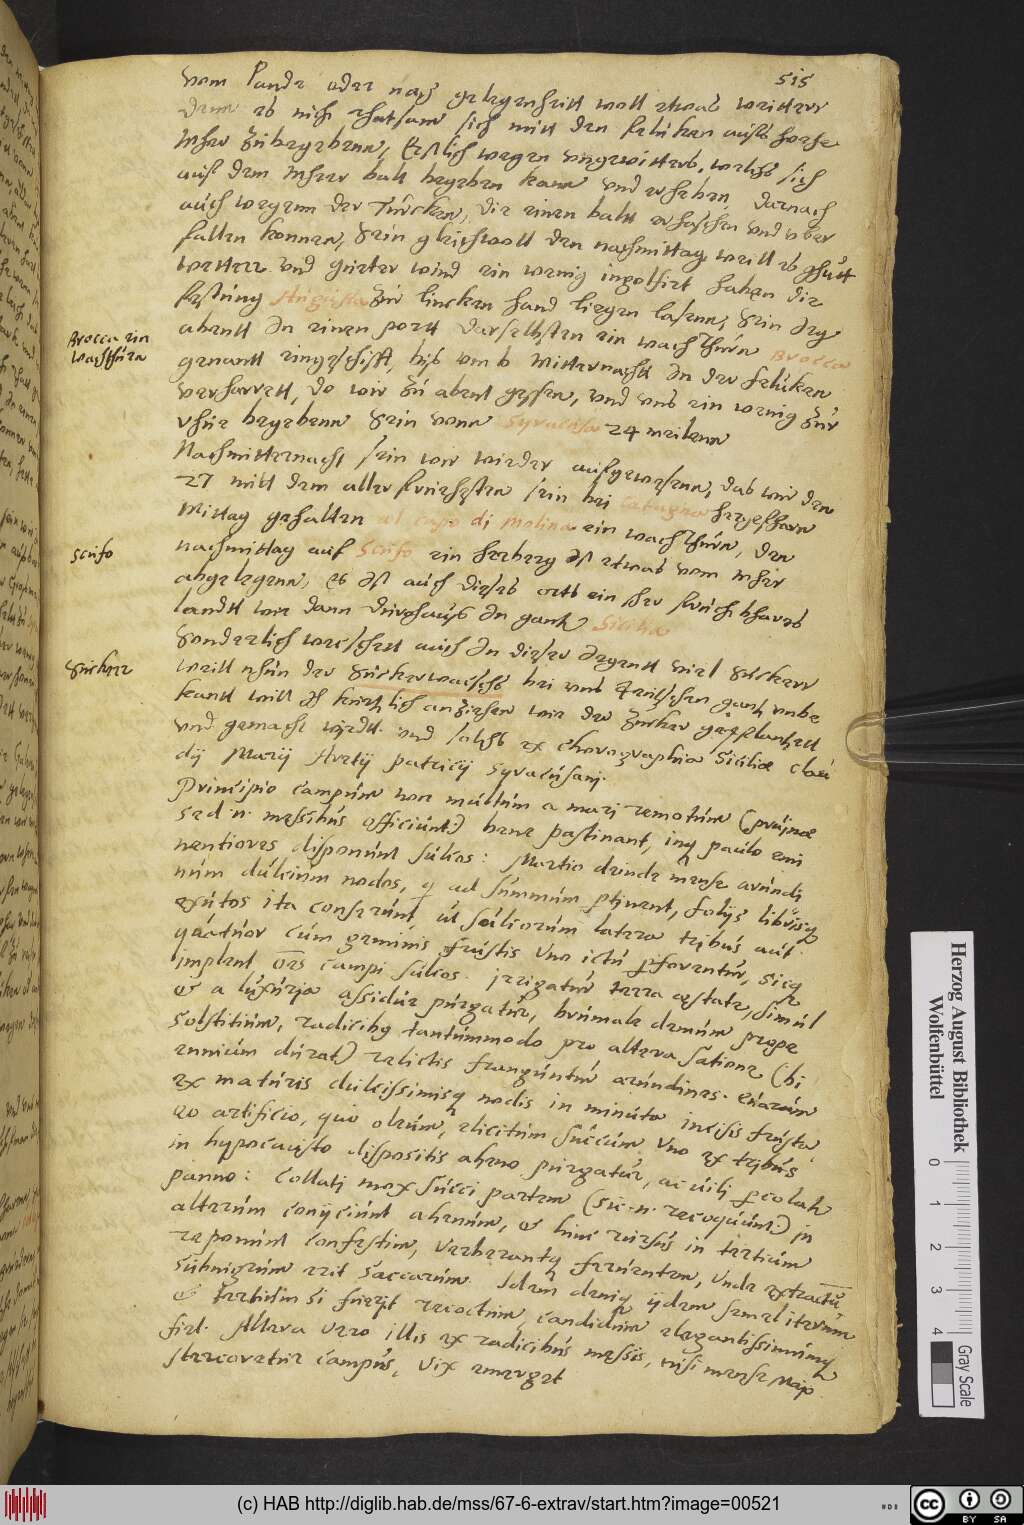 515
vom Lande oder nach gelegenheitt woll etwas weitterr
denn es nich rhatsam sich mitt den felucken auffs hoche
Mher zu begebenn, Erstlich wegen ungewitters, welchs sich
auff dem Mheer balt begeben kann und erheben, darnach
auch wegenn der Türcken, die einen baltt erhaschen und uber
fallen konnen, Sein gleichwoll den nachmittag weill es ghutt
wetterr und gueter wind ein wenig ingolfirt haben die
festung Augusta zur lincken hand liegen lasenn, sein deg
abentt In einen portt darselbsten ein wachthurn Brocca
genantt eingeschifft, bis umb Mitternacht In der felucken
verharrett, do wir zu abent gessen, und uns ein wenig zur
rhue begebenn sein vonn Syracusa 24 meilenn
Brocca ein
wachthurn
Nachmitternacht sein wir wieder auffgewesenn, das wir den
27 mitt dem aller fruehesten sein bei hergefharn
Mittag gehalten al capo di Molina ein wachthurn, den
nachmittag auf Scufo ein herberg Ist etwas vom Mher
Scufo
abgelegenn, es Ist auch dieses ortts ein sher fruchtbares
landtt wie dann durchaus In gantz Sicilia
Sonderlich wechsett auch In dieser Jegentt viel Zuckerr
Zuckerr
weill nhun der Zuckerwachs bei uns Teutschen gantz unbe
kantt will Ich kurtzlich anziehen wie der Zucker gepflantzett
und gemacht wirdtt und solchs ex chorographia Siciliæ clari
dij Marij Aretij patricij Syracusanj.
Principio campum non multum a mari remotum (pruinæ
sed n. messibus officiunt) bene pastinant, inq paulo emi
nentiores disponunt sulcos: Martio deinde mense arundi
num dulcium nodos, q ad summum ptinent, folijs librisq
exutos ita conserunt, ut sulcorum latera tribus aut
quatuor cum geminis frustis uno ictu pforentur, sicq
implent oes campi sulcos. irrigatur terra æstate, simul
et a luxuria assidue purgatur, brumale demum prope
solstitium, radicibq tantummodo pro altera satione (bi
ennium durat) relictis franguntur arundines. quarum
ex maturis dulcissimisq nodis in minuta incisis frusta
eo artificio, quo oleum, elicitum succum uno ex tribus
in hypocausto dispositis aheno purgatur, ac vili pcolatr
panno: Collati mox succi partem (sic n. recoquunt) in
alterum conijciunt ahenum, et hinc rursus in tertium
reponunt confestim, verberantq feruentem, unde extractu
subnigrum erit saccarum. Idem deniq ijdem semel iterum
et tertium si fuerit recoctum, candidum elegantissimumq
fiet. Altera vero illis ex radicibus messis, nisi mense Maio
stercoretur campus, vix emerget
(c) HAB http://diglib.hab.de/mss/67-6-extrav/start.htm?image=00521
Herzog August Bibliothek
Wolfenbüttel
0 1 2 3 4
Gray Scale
BY SA